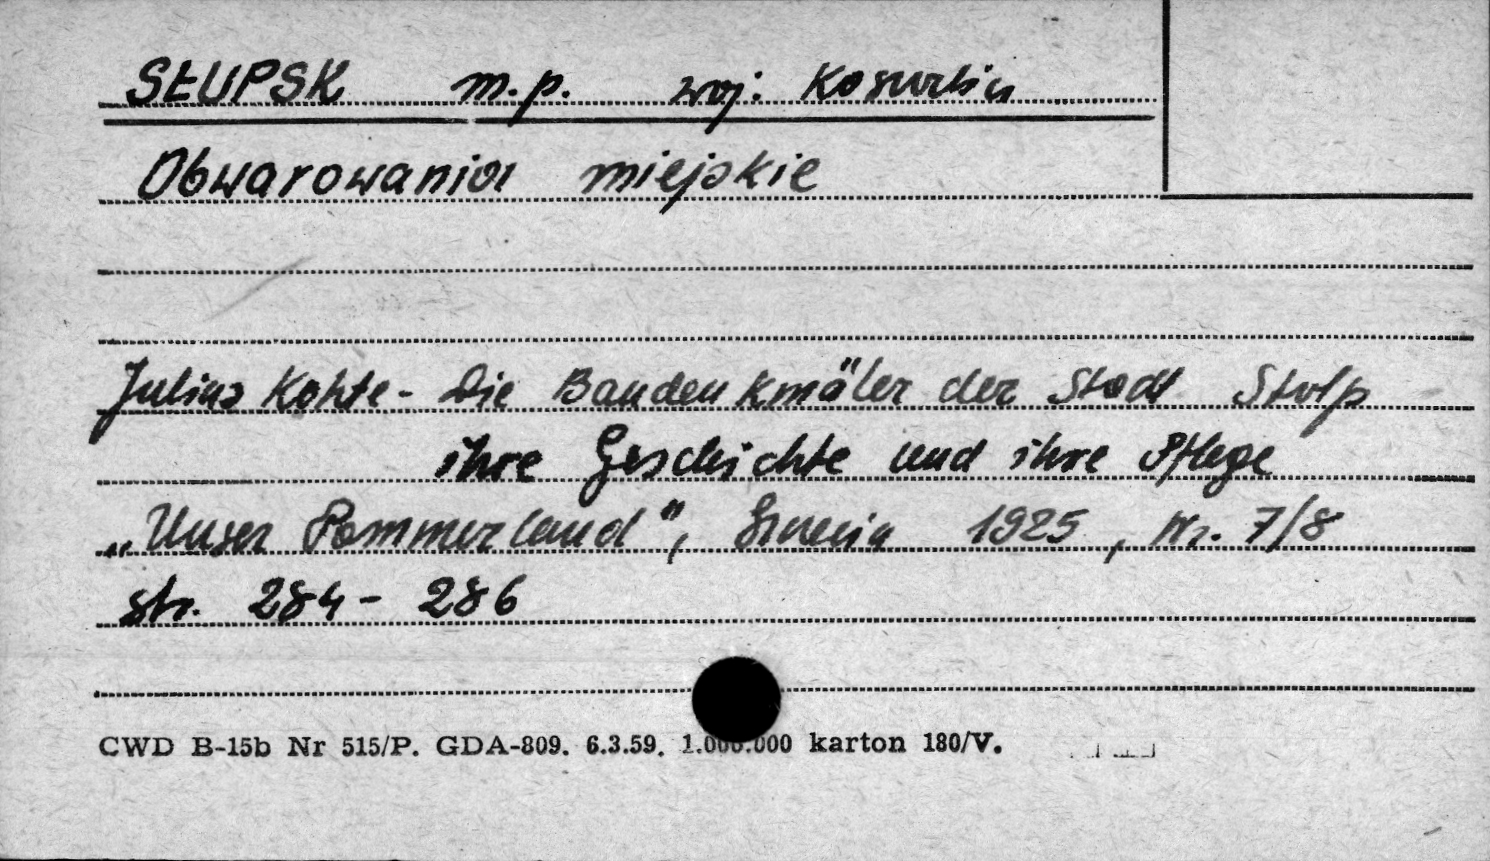 SŁUPSK m.p. woj. Koszalin
Obwarowania miejskie
Julius Kohte - Die Baudenkmäler der Stadt Stolp
ihre Geschichte und ihre Pflege
„Unser Pommerland", 1925, Nr. 7/8
str. 284 - 286
CWD B-15b Nr 515/P. GDA-809. 6.3.59. 1.000.000 karton 180/V.